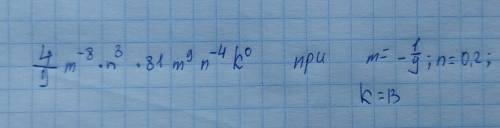 4/9 m⁻⁸ · n³ · 81 m⁹ n⁻⁴ k⁰ при m = -1/9; n = 0,2;
k = 13